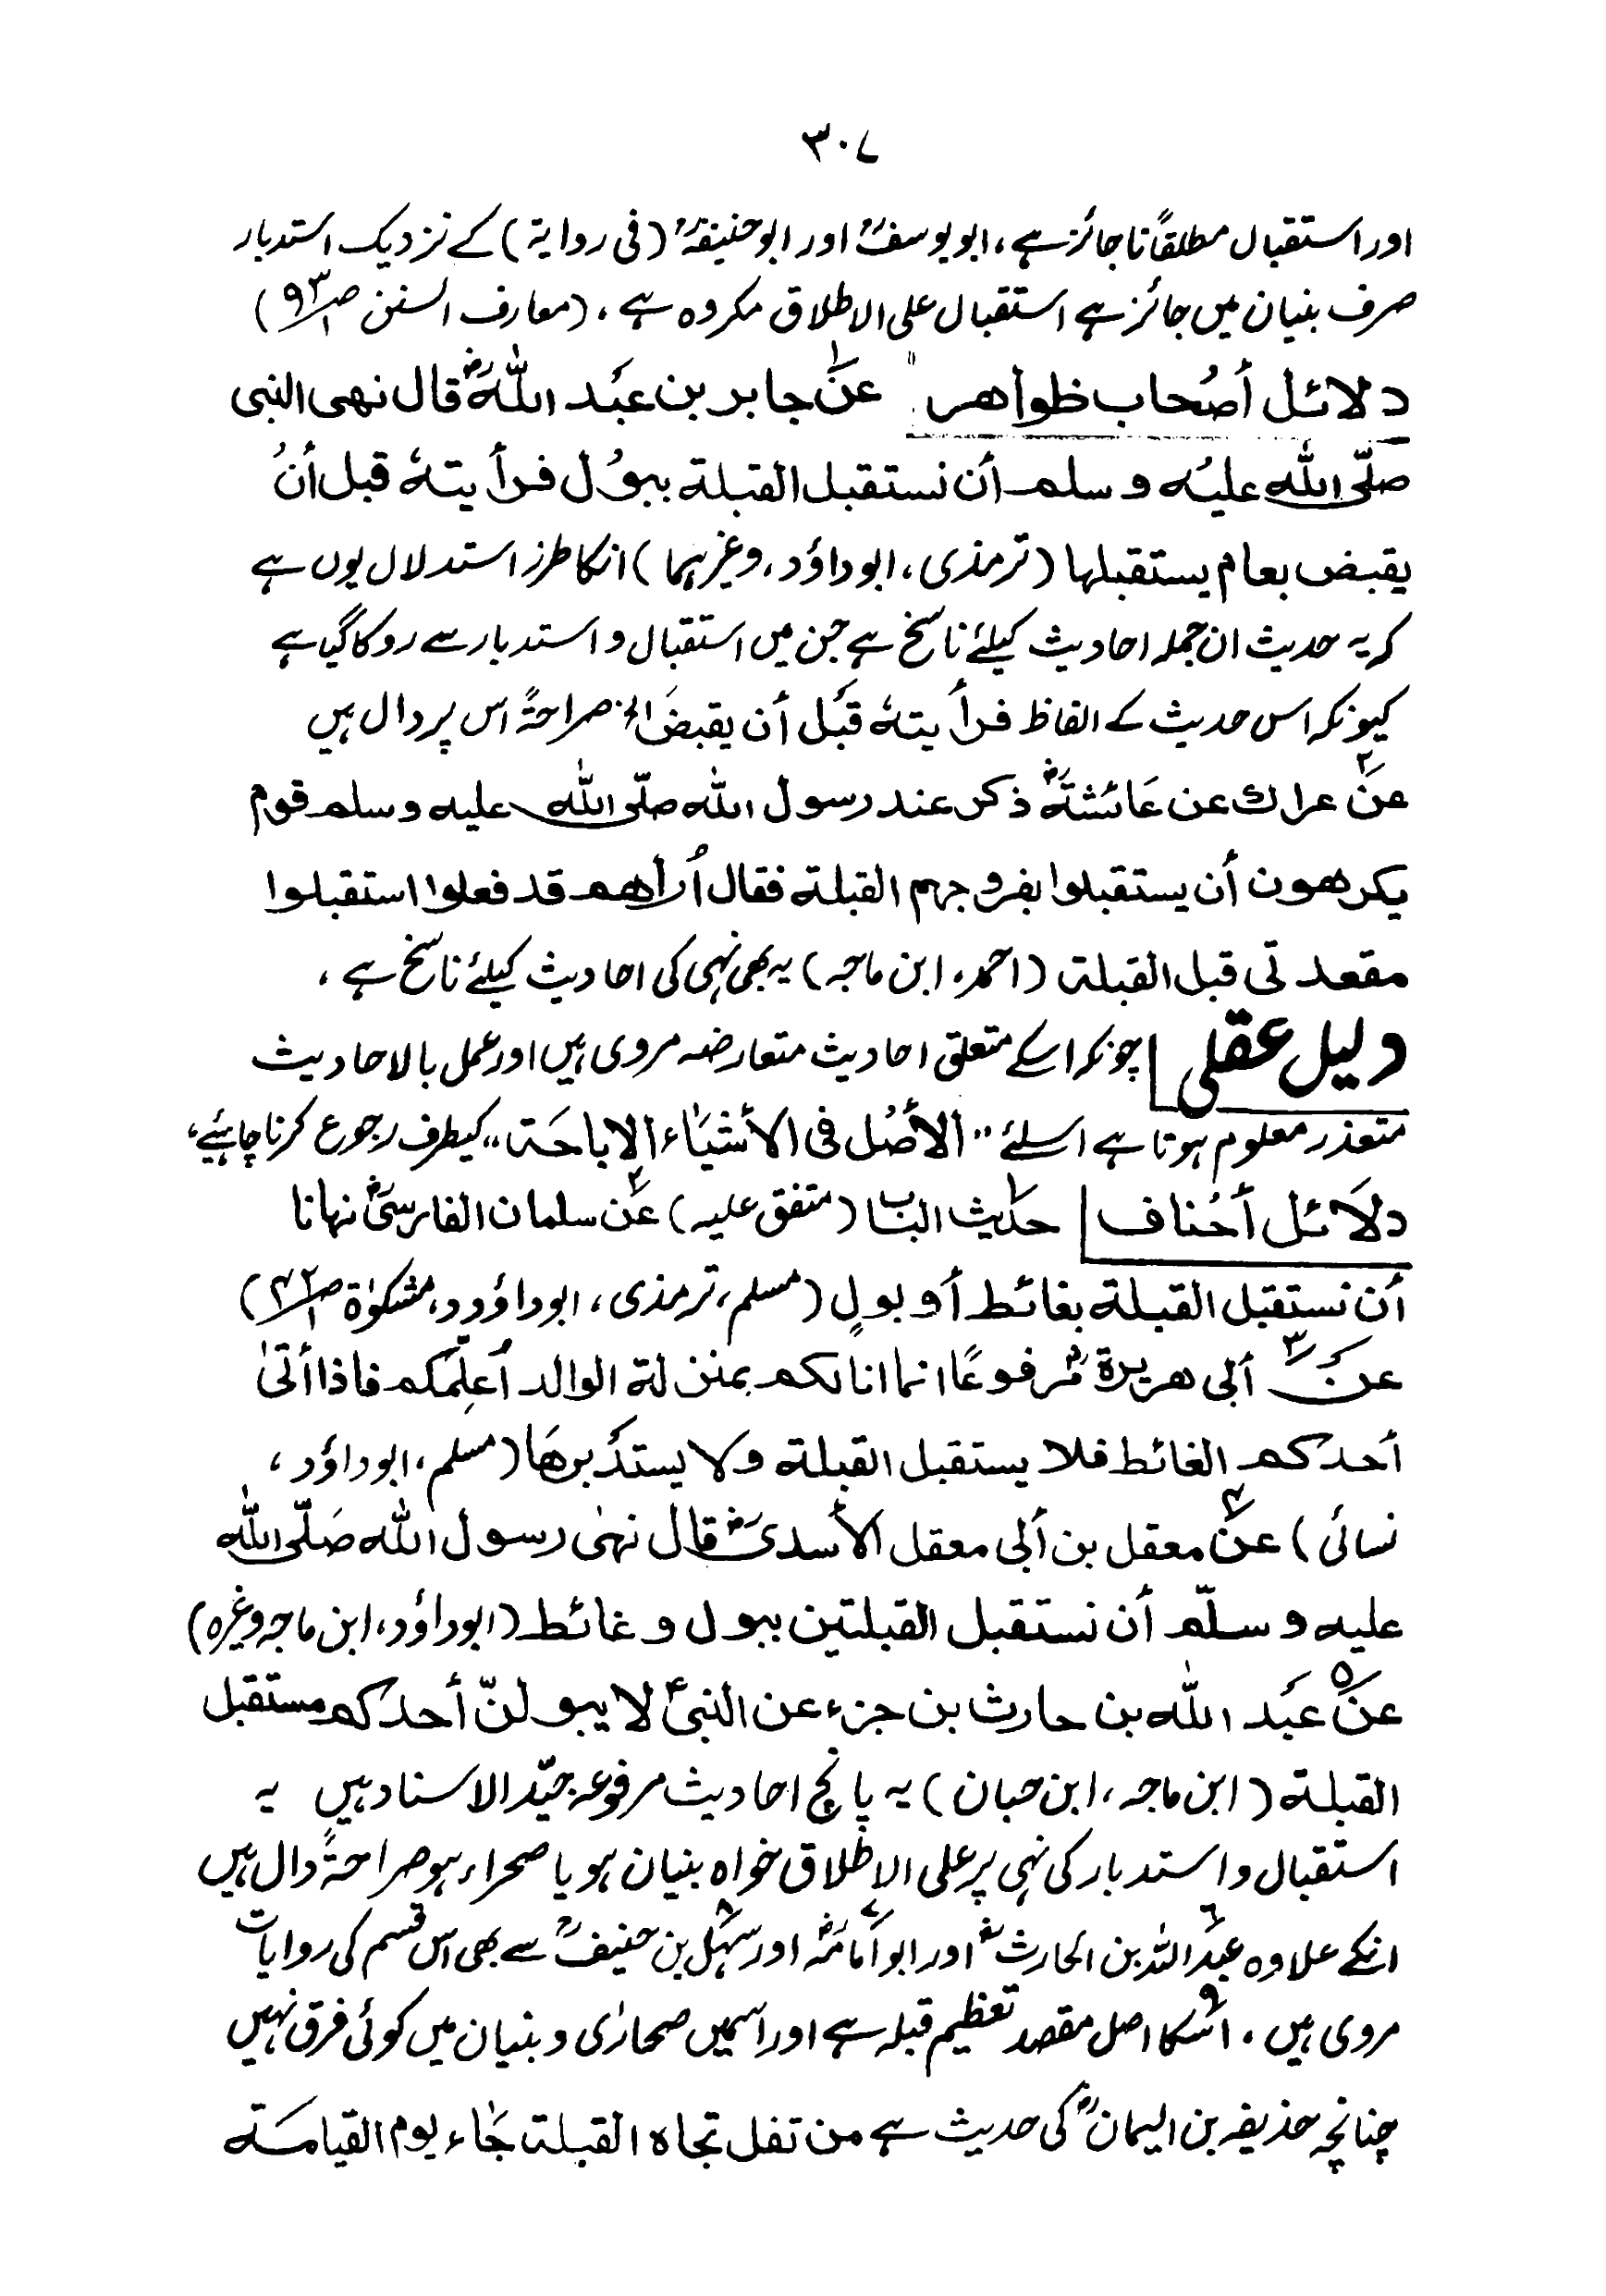 ۳۰۷
اور استقبال مطلقاً ناجائز ہے، ابو یوسفؒ اور ابو حنیفہؒ (فی روایۃ) کے نزدیک استدبار
صرف بنیان میں جائز ہے استقبال علی الاطلاق مکروہ ہے، (معارف السنن ص۹۳)
دلائل أصحاب ظواھر عن جابر بن عبد اللہؓ قال نھی النبی
صلّی اللہ علیہ وسلم أن نستقبل القبلۃ ببول فرأیتہٗ قبل أن
یقبض بعام یستقبلھا (ترمذی، ابوداؤد، وغیرہما) انکا طرز استدلال یوں ہے
کہ یہ حدیث ان جملہ احادیث کیلئے ناسخ ہے جن میں استقبال و استدبار سے روکا گیا ہے
کیونکہ اس حدیث کے الفاظ فرأیتہٗ قبل أن یقبض الخ صراحۃً اس پر دال ہیں
۲ عن عراك عن عائشۃؓ ذکر عند رسول اللہ صلّی اللہ علیہ وسلم قوم
یکرھون أن یستقبلوا بفروجہم القبلۃ فقال أراھم قد فعلوا استقبلوا
مقعدتی قبل القبلۃ (احمد، ابن ماجہ) یہ بھی نہی کی احادیث کیلئے ناسخ ہے،
دلیل عقلی چونکہ اسکے متعلق احادیث متعارضہ مروی ہیں اور عمل بالاحادیث
متعذر معلوم ہوتا ہے اسلئے "الأصل فی الأشیاء الإباحۃ" کیطرف رجوع کرنا چاہئے،
دلائل أحناف ۱ حدیث الباب (متفق علیہ) ۲ عن سلمان الفارسیؓ نہانا
أن نستقبل القبلۃ بغائط أو بولٍ (مسلم، ترمذی، ابوداؤود، مشکوٰۃ ص۴۲)
۳ عن أبی ھریرۃؓ مرفوعًا انما انا لکم بمنزلۃ الوالد أعلّمکم فاذا أتیٰ
أحدکم الغائط فلا یستقبل القبلۃ ولا یستدبرھا (مسلم، ابوداؤد،
نسائی) ۴ عن معقل بن أبی معقل الأسدیؓ قال نہٰی رسول اللہ صَلّی اللہ
علیہ وسلّم أن نستقبل القبلتین ببول وغائط (ابوداؤد، ابن ماجہ وغیرہ)
۵ عن عبد اللہ بن حارث بن جزء عن النبیؐ لا یبولنّ أحدکم مستقبل
القبلۃ (ابن ماجہ، ابن حبان) یہ پانچ احادیث مرفوعہ جیّد الاسناد ہیں یہ
استقبال و استدبار کی نہی پر علی الاطلاق خواہ بنیان ہو یا صحراء ہو صراحۃً دال ہیں
انکے علاوہ ۶ عبد اللہ بن الحارثؓ اور ۷ ابو أمامہؓ اور ۸ سہل بن حنیفؓ سے بھی اس قسم کی روایات
مروی ہیں۔ ۹ اسکا اصل مقصد تعظیم قبلہ ہے اور اسمیں صحاریٰ و بنیان میں کوئی فرق نہیں
چنانچہ حذیفہ بن الیمانؓ کی حدیث ہے من تفل تجاہ القبلۃ جاء یوم القیامۃ